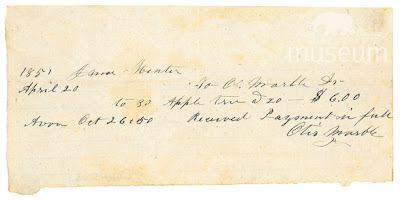 museum
1851 Hunter
April 20 To O. Marble Dr
to 30 Apple tree 20 — $6.00
Avon Oct 26 1850 Received Payment in full
Otis Marble